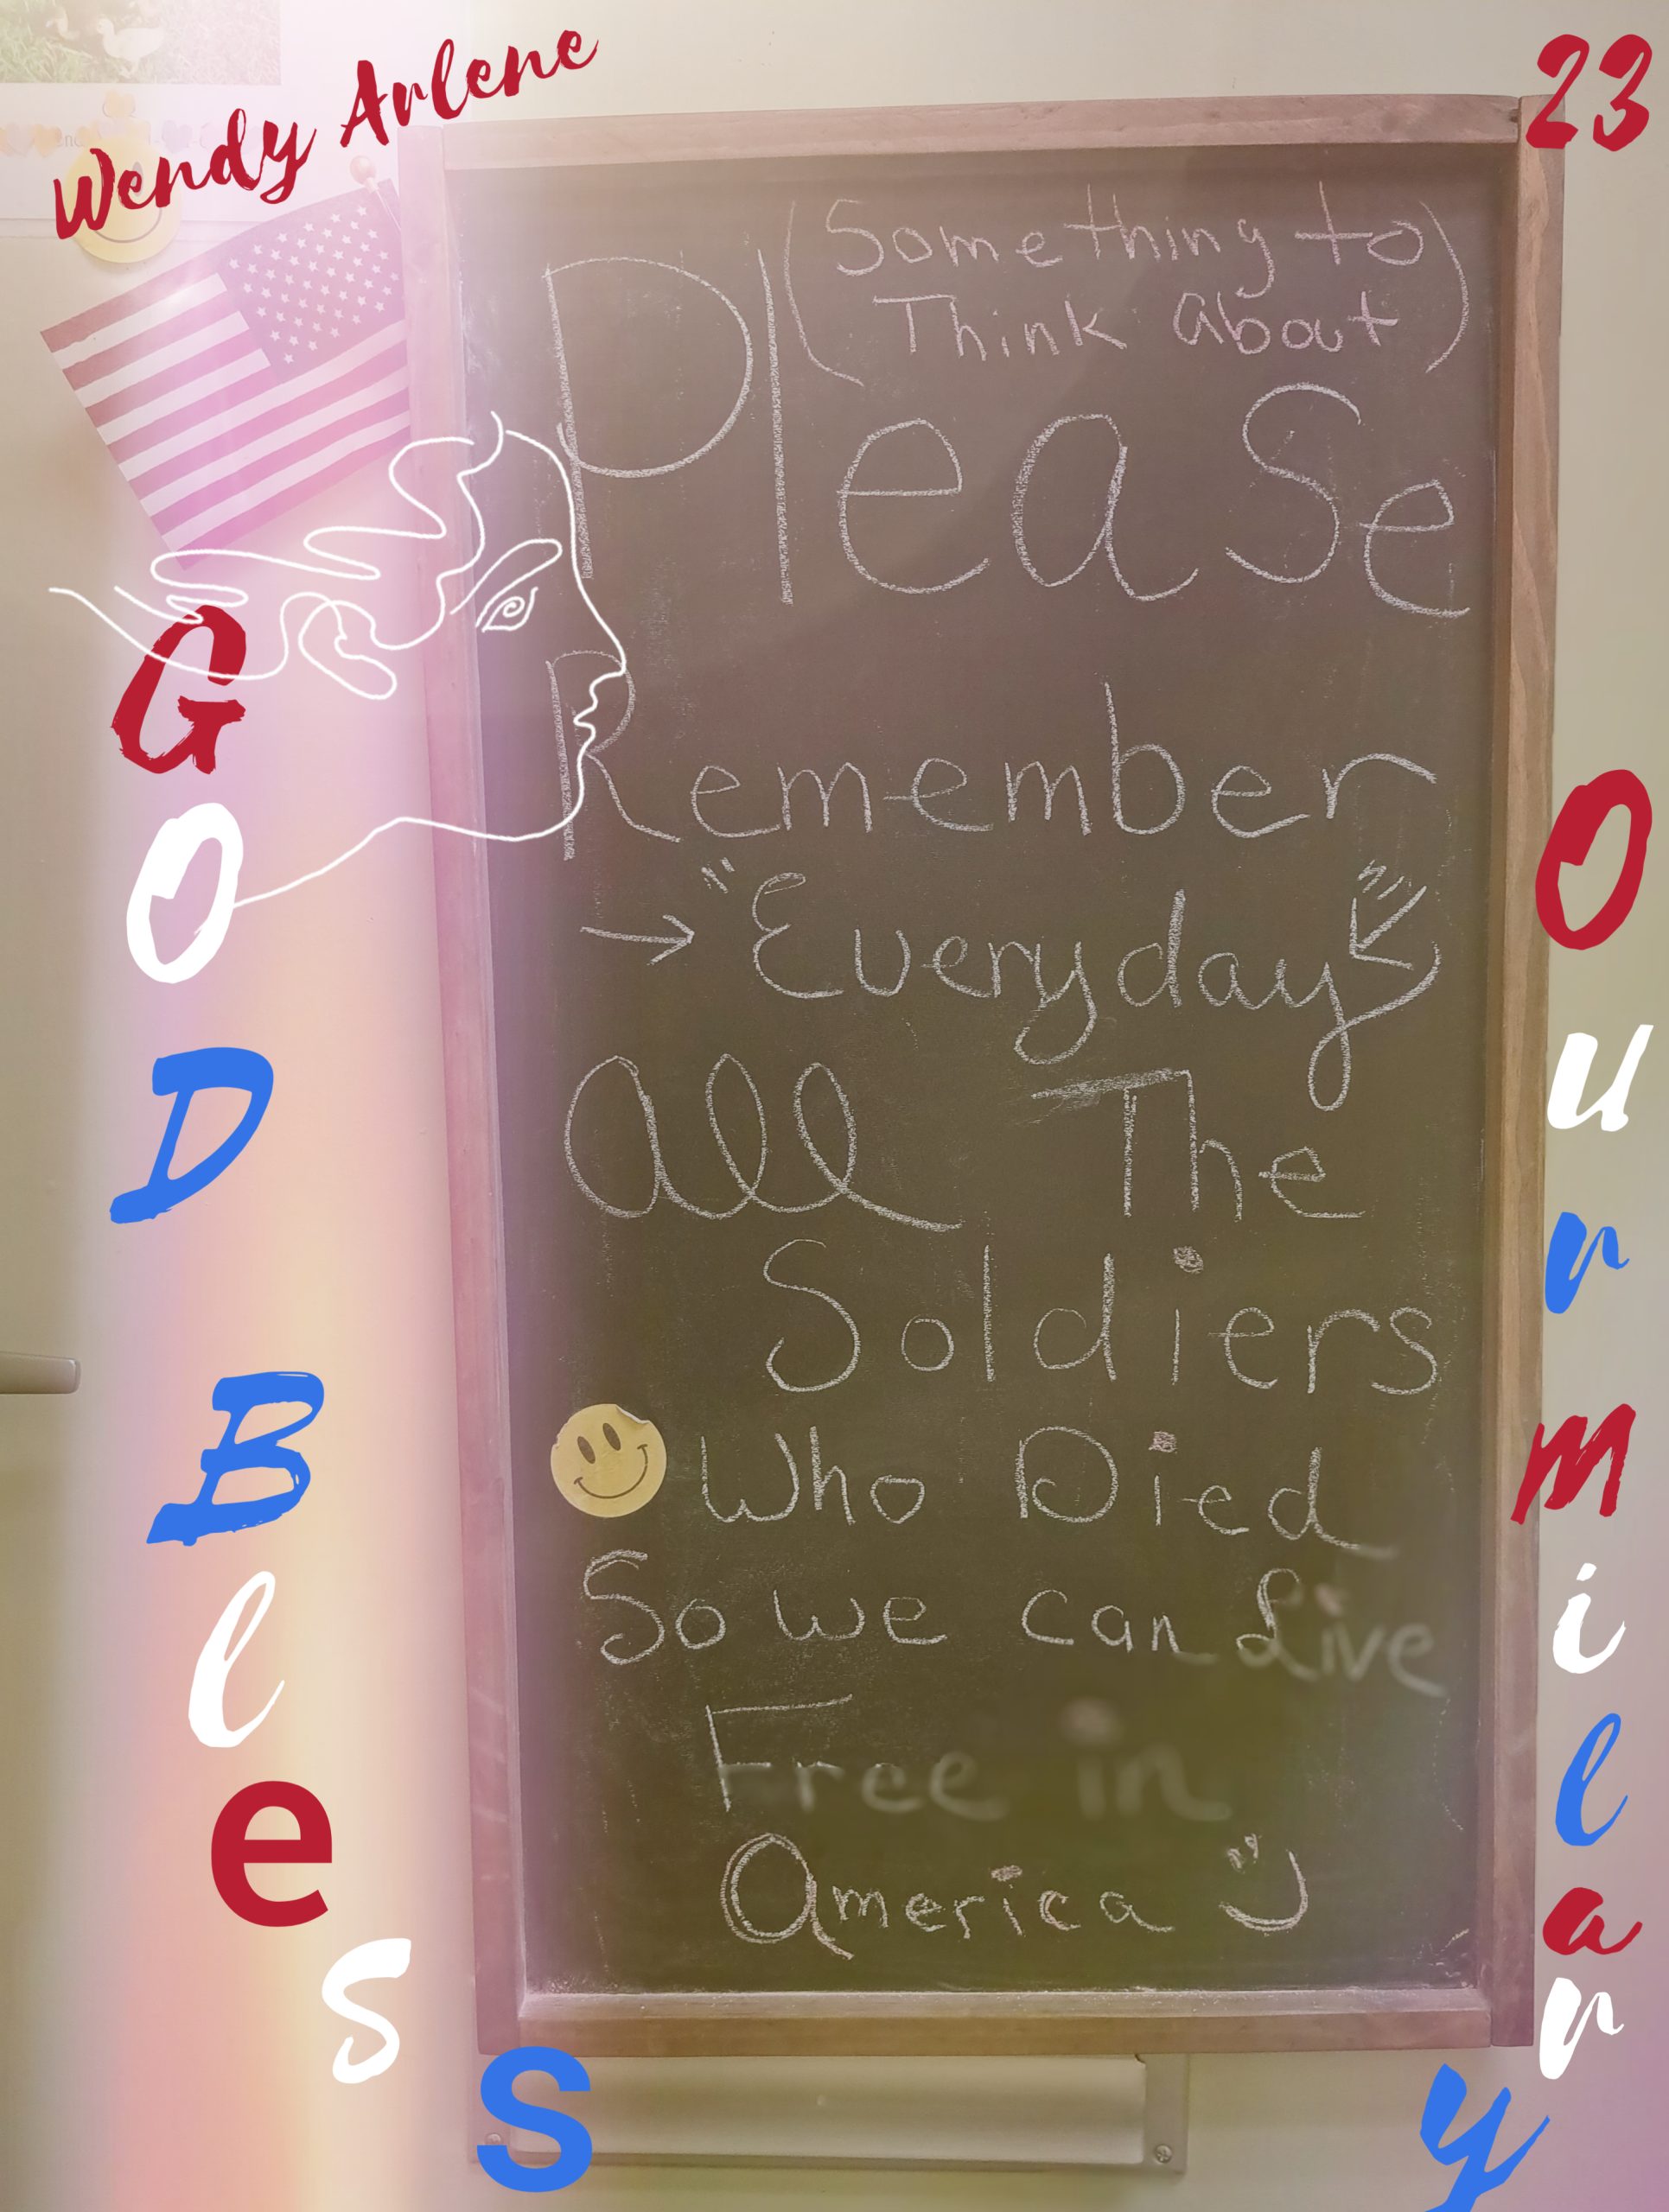 Wendy Arlene
23
(Something to
Think About)
Please
Remember
→ "Everyday"
All The
Soldiers
Who Died
So we can Live
Free in
America
GOD
Bless
Our
milary